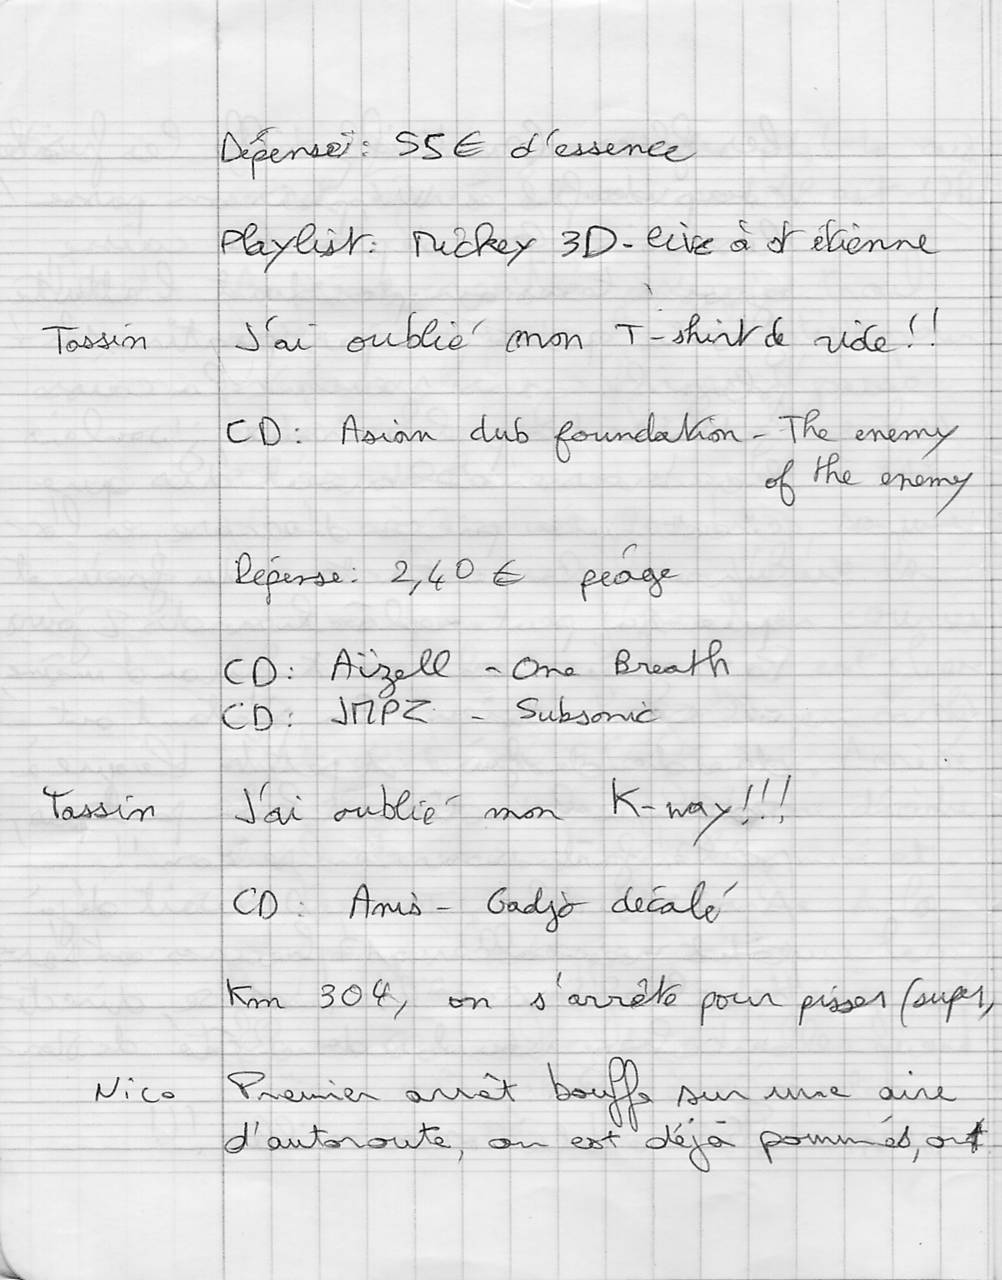 Dépenses: 55€ d'essence
Playlist: Mickey 3D - live à St étienne
Tassin J'ai oublié mon T-shirt de ride!!
CD: Asian dub foundation - The enemy
of the enemy
Dépense: 2,40€ péage
CD: Aïzell - One Breath
CD: JMPZ - Subsonic
Tassin J'ai oublié mon K-way!!!
CD: Anis - Gadjo décalé
Km 304, on s'arrête pour pisser (super,
Nico Premier arrêt bouffe sur une aire
d'autoroute, on est déjà pommés, on